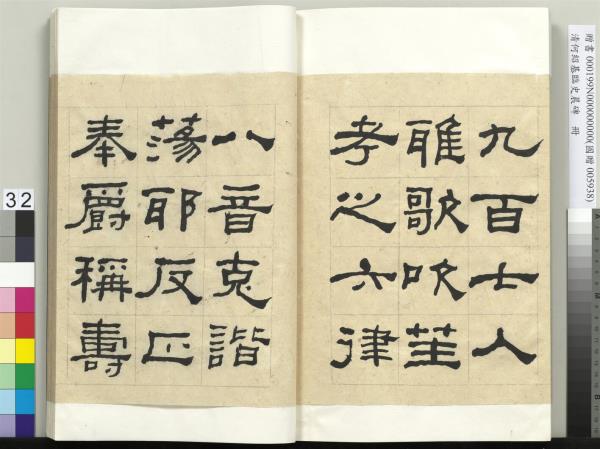 九百七人
雅歌吹笙
考之六律
八音克諧
蕩耶反正
奉爵稱壽
贈書 000199N000000000(國贈 005938)
清何紹基臨史晨碑 冊
32